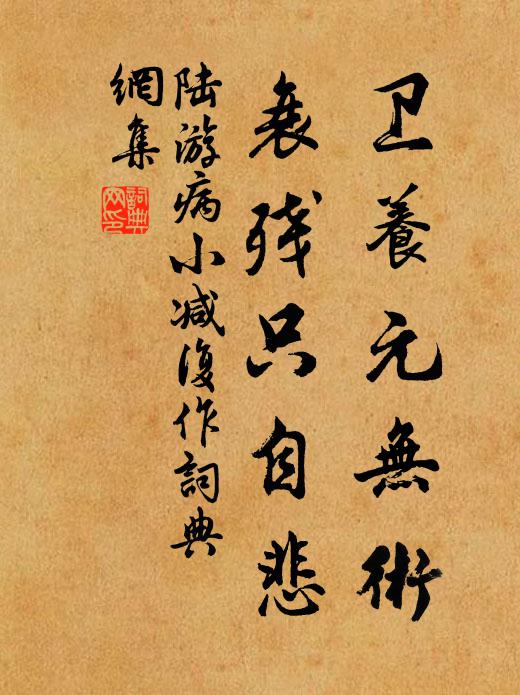 卫養元無術
衰残只自悲
陆游病小减復作詞典
網集
詞典
网印